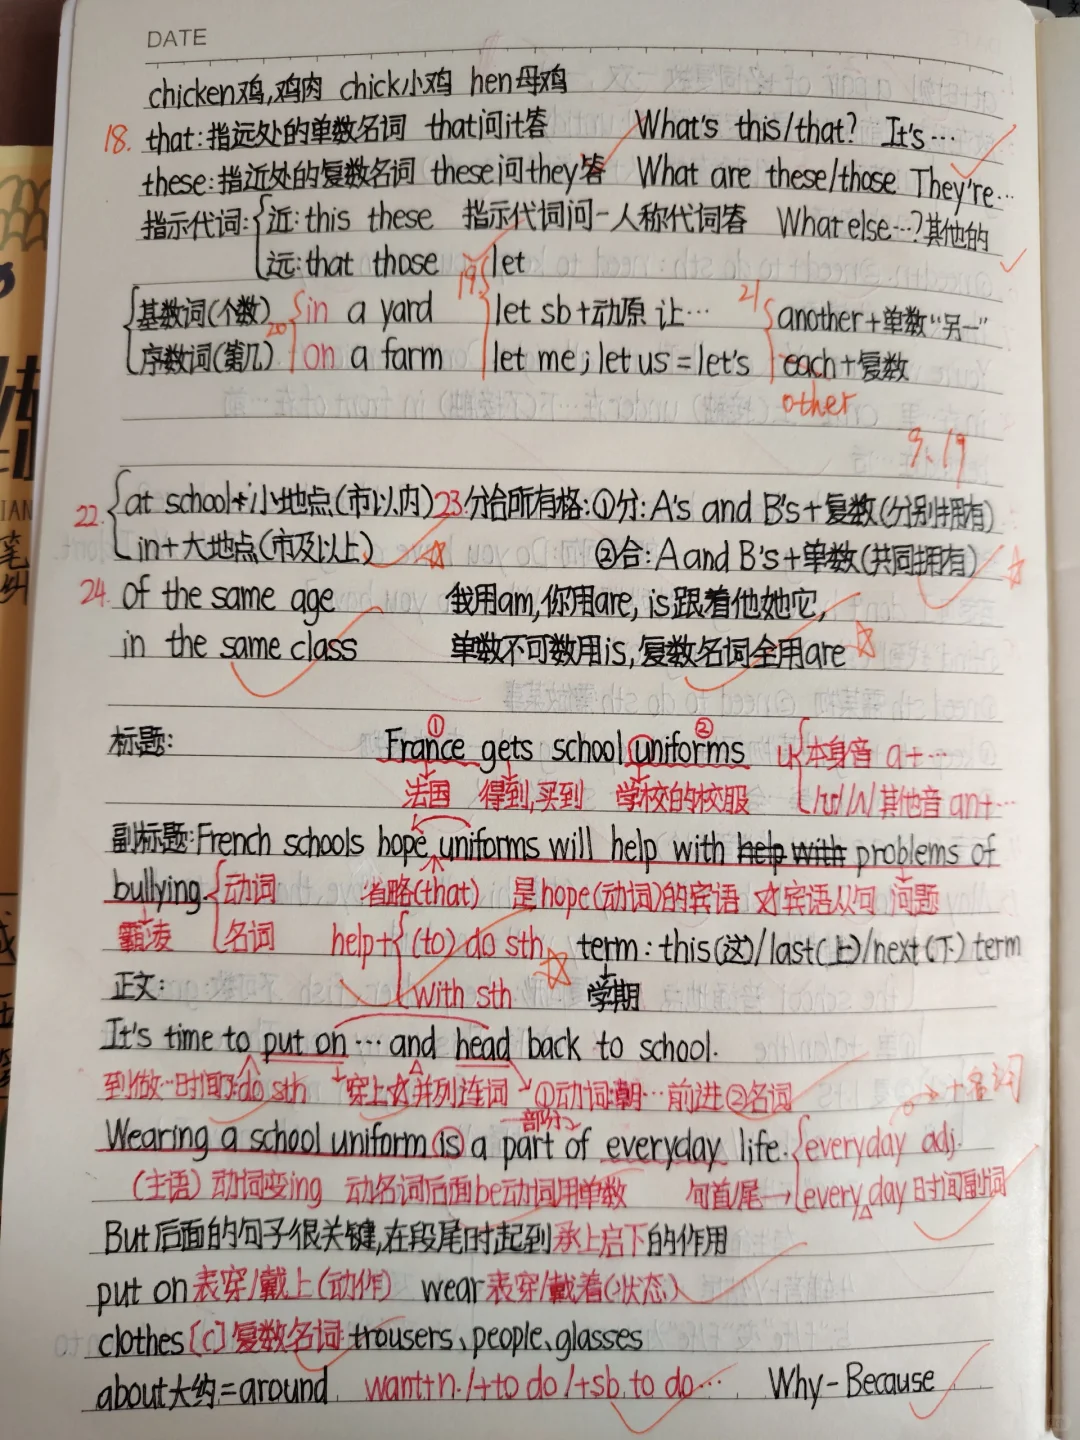 DATE
chicken鸡,鸡肉 chick小鸡 hen母鸡
18. that:指远处的单数名词 that问it答 What's this/that? It's…
these:指近处的复数名词 these问they答 What are these/those They're…
指示代词:{近:this these 指示代词问-人称代词答 What else…?其他的
远:that those 19 let
基数词(个数) 20 in a yard let sb+动原 让… 21 another+单数"另一"
序数词(第几) on a farm let me; let us=let's each+复数
other
9.19
22. at school+小地点(市以内) 23.分合所有格:①分:A's and B's+复数(分别拥有)
in+大地点(市及以上) ☆ ②合:A and B's+单数(共同拥有) ☆
24. of the same age 我用am,你用are, is跟着他她它,
in the same class 单数不可数用is,复数名词全用are ☆
① ②
标题: France gets school uniforms u 本身音 a+…
法国 得到,买到 学校的校服 其他音 an+…
副标题:French schools hope uniforms will help with help with problems of
bullying 动词 省略(that) 是hope(动词)的宾语 ☆宾语从句 问题
霸凌 名词 help+{(to) do sth ☆ term:this(这)/last(上)/next(下) term
正文: with sth 学期
It's time to put on … and head back to school.
到做…时间了do sth 穿上☆并列连词 ①动词:朝…前进②名词
一部分 +名词
Wearing a school uniform is a part of everyday life. {everyday adj.
(主语)动词变ing 动名词后面be动词用单数 句首/尾→every day时间副词
But后面的句子很关键,在段尾时起到承上启下的作用
put on表穿/戴上(动作) wear表穿/戴着(状态)
clothes [c]复数名词 trousers、people、glasses
about大约=around want+n./+to do/+sb. to do… Why-Because